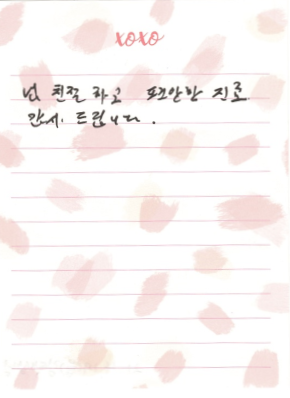 xoxo
넘 친절 하고 편안한 진료
감사 드립니다.